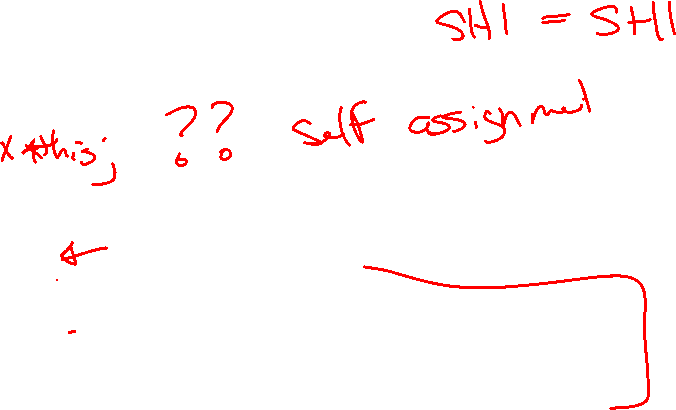 SH1 = SH1
*this; ?? self assignment